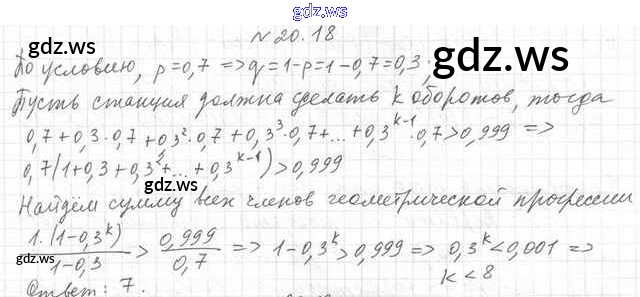 gdz.ws
№20.18
gdz.ws gdz.ws
По условию, p=0,7 => q=1-p=1-0,7=0,3;
Пусть станция должна сделать k оборотов, тогда
0,7+0,3·0,7+0,3²·0,7+0,3³·0,7+...+0,3^(k-1)·0,7>0,999 =>
0,7(1+0,3+0,3²+...+0,3^(k-1))>0,999
gdz.ws
Найдём сумму всех членов геометрической прогрессии
1·(1-0,3^k)/(1-0,3) > 0,999/0,7 => 1-0,3^k>0,999 => 0,3^k<0,001 =>
k<8
gdz.ws gdz.ws
Ответ: 7.